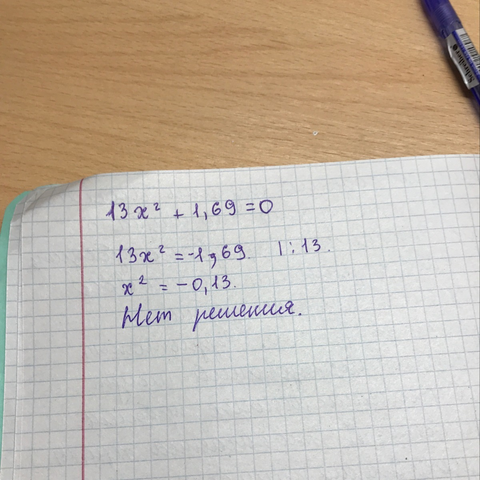 13x² + 1,69 = 0
13x² = -1,69. | : 13.
x² = -0,13.
Нет решения.